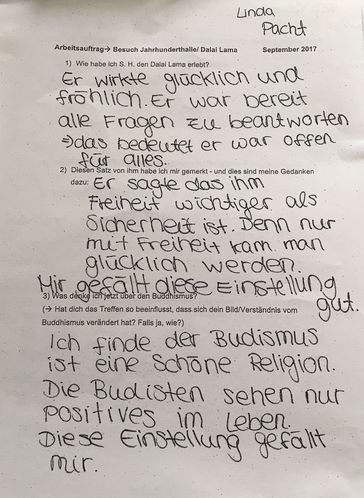 Linda
Pacht
Arbeitsauftrag→ Besuch Jahrhunderthalle/ Dalai Lama September 2017
1) Wie habe ich S. H. den Dalai Lama erlebt?
Er wirkte glücklich und
fröhlich. Er war bereit
alle Fragen zu beantworten
⇒das bedeutet er war offen
für alles.
2) Diesen Satz von ihm habe ich mir gemerkt - und dies sind meine Gedanken
dazu: Er sagte das ihm
Freiheit wichtiger als
Sicherheit ist. Denn nur
mit Freiheit kam man
glücklich werden.
Mir gefällt diese Einstellung
gut.
3) Was denke ich jetzt über den Buddhismus?
(→ Hat dich das Treffen so beeinflusst, dass sich dein Bild/Verständnis vom
Buddhismus verändert hat? Falls ja, wie?)
Ich finde der Budismus
ist eine schöne Religion.
Die Budisten sehen nur
positives im Leben.
Diese Einstellung gefällt
mir.